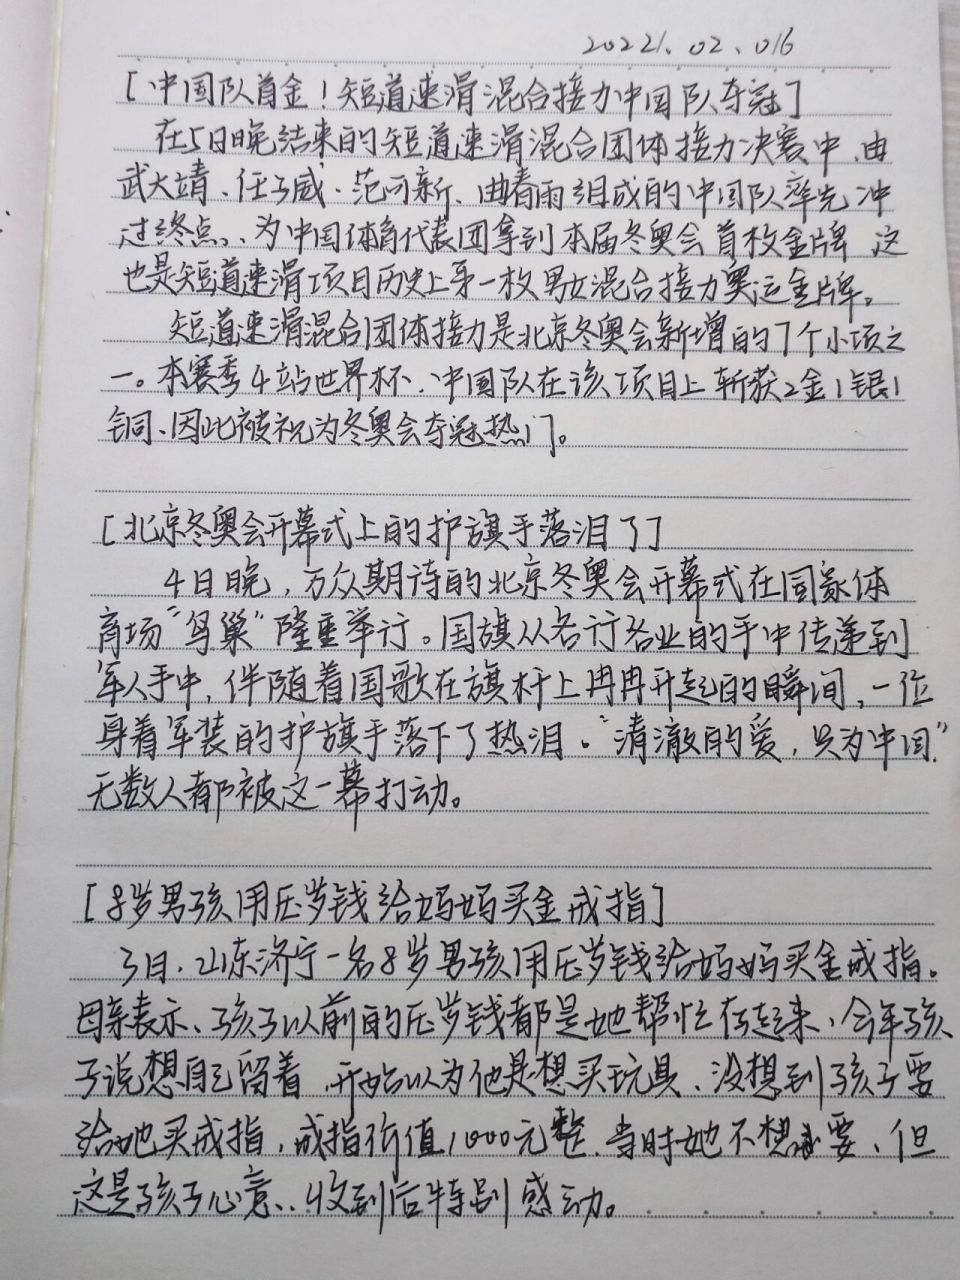 2022.02.06
[中国队首金！短道速滑混合接力中国队夺冠]
在5日晚结束的短道速滑混合团体接力决赛中、由
武大靖、任子威、范可新、曲春雨组成的中国队率先冲
过终点、为中国体育代表团拿到本届冬奥会首枚金牌、这
也是短道速滑项目历史上第一枚男女混合接力奥运金牌。
短道速滑混合团体接力是北京冬奥会新增的7个小项之
一。本赛季4站世界杯、中国队在该项目上斩获2金1银1
铜、因此被视为冬奥会夺冠热门。
[北京冬奥会开幕式上的护旗手落泪了]
4日晚，万众期待的北京冬奥会开幕式在国家体
育场“鸟巢”隆重举行。国旗从各行各业的手中传递到
军人手中，伴随着国歌在旗杆上冉冉升起的瞬间，一位
身着军装的护旗手落下了热泪。“清澈的爱，只为中国”
无数人都被这一幕打动。
[8岁男孩用压岁钱给妈妈买金戒指]
3日、山东济宁一名8岁男孩用压岁钱给妈妈买金戒指。
母亲表示、孩子以前的压岁钱都是她帮忙存起来、今年孩
子说想自己留着、开始以为他是想买玩具、没想到孩子要
给她买戒指，戒指价值1000元整、当时她不想要、但
这是孩子心意、收到后特别感动。